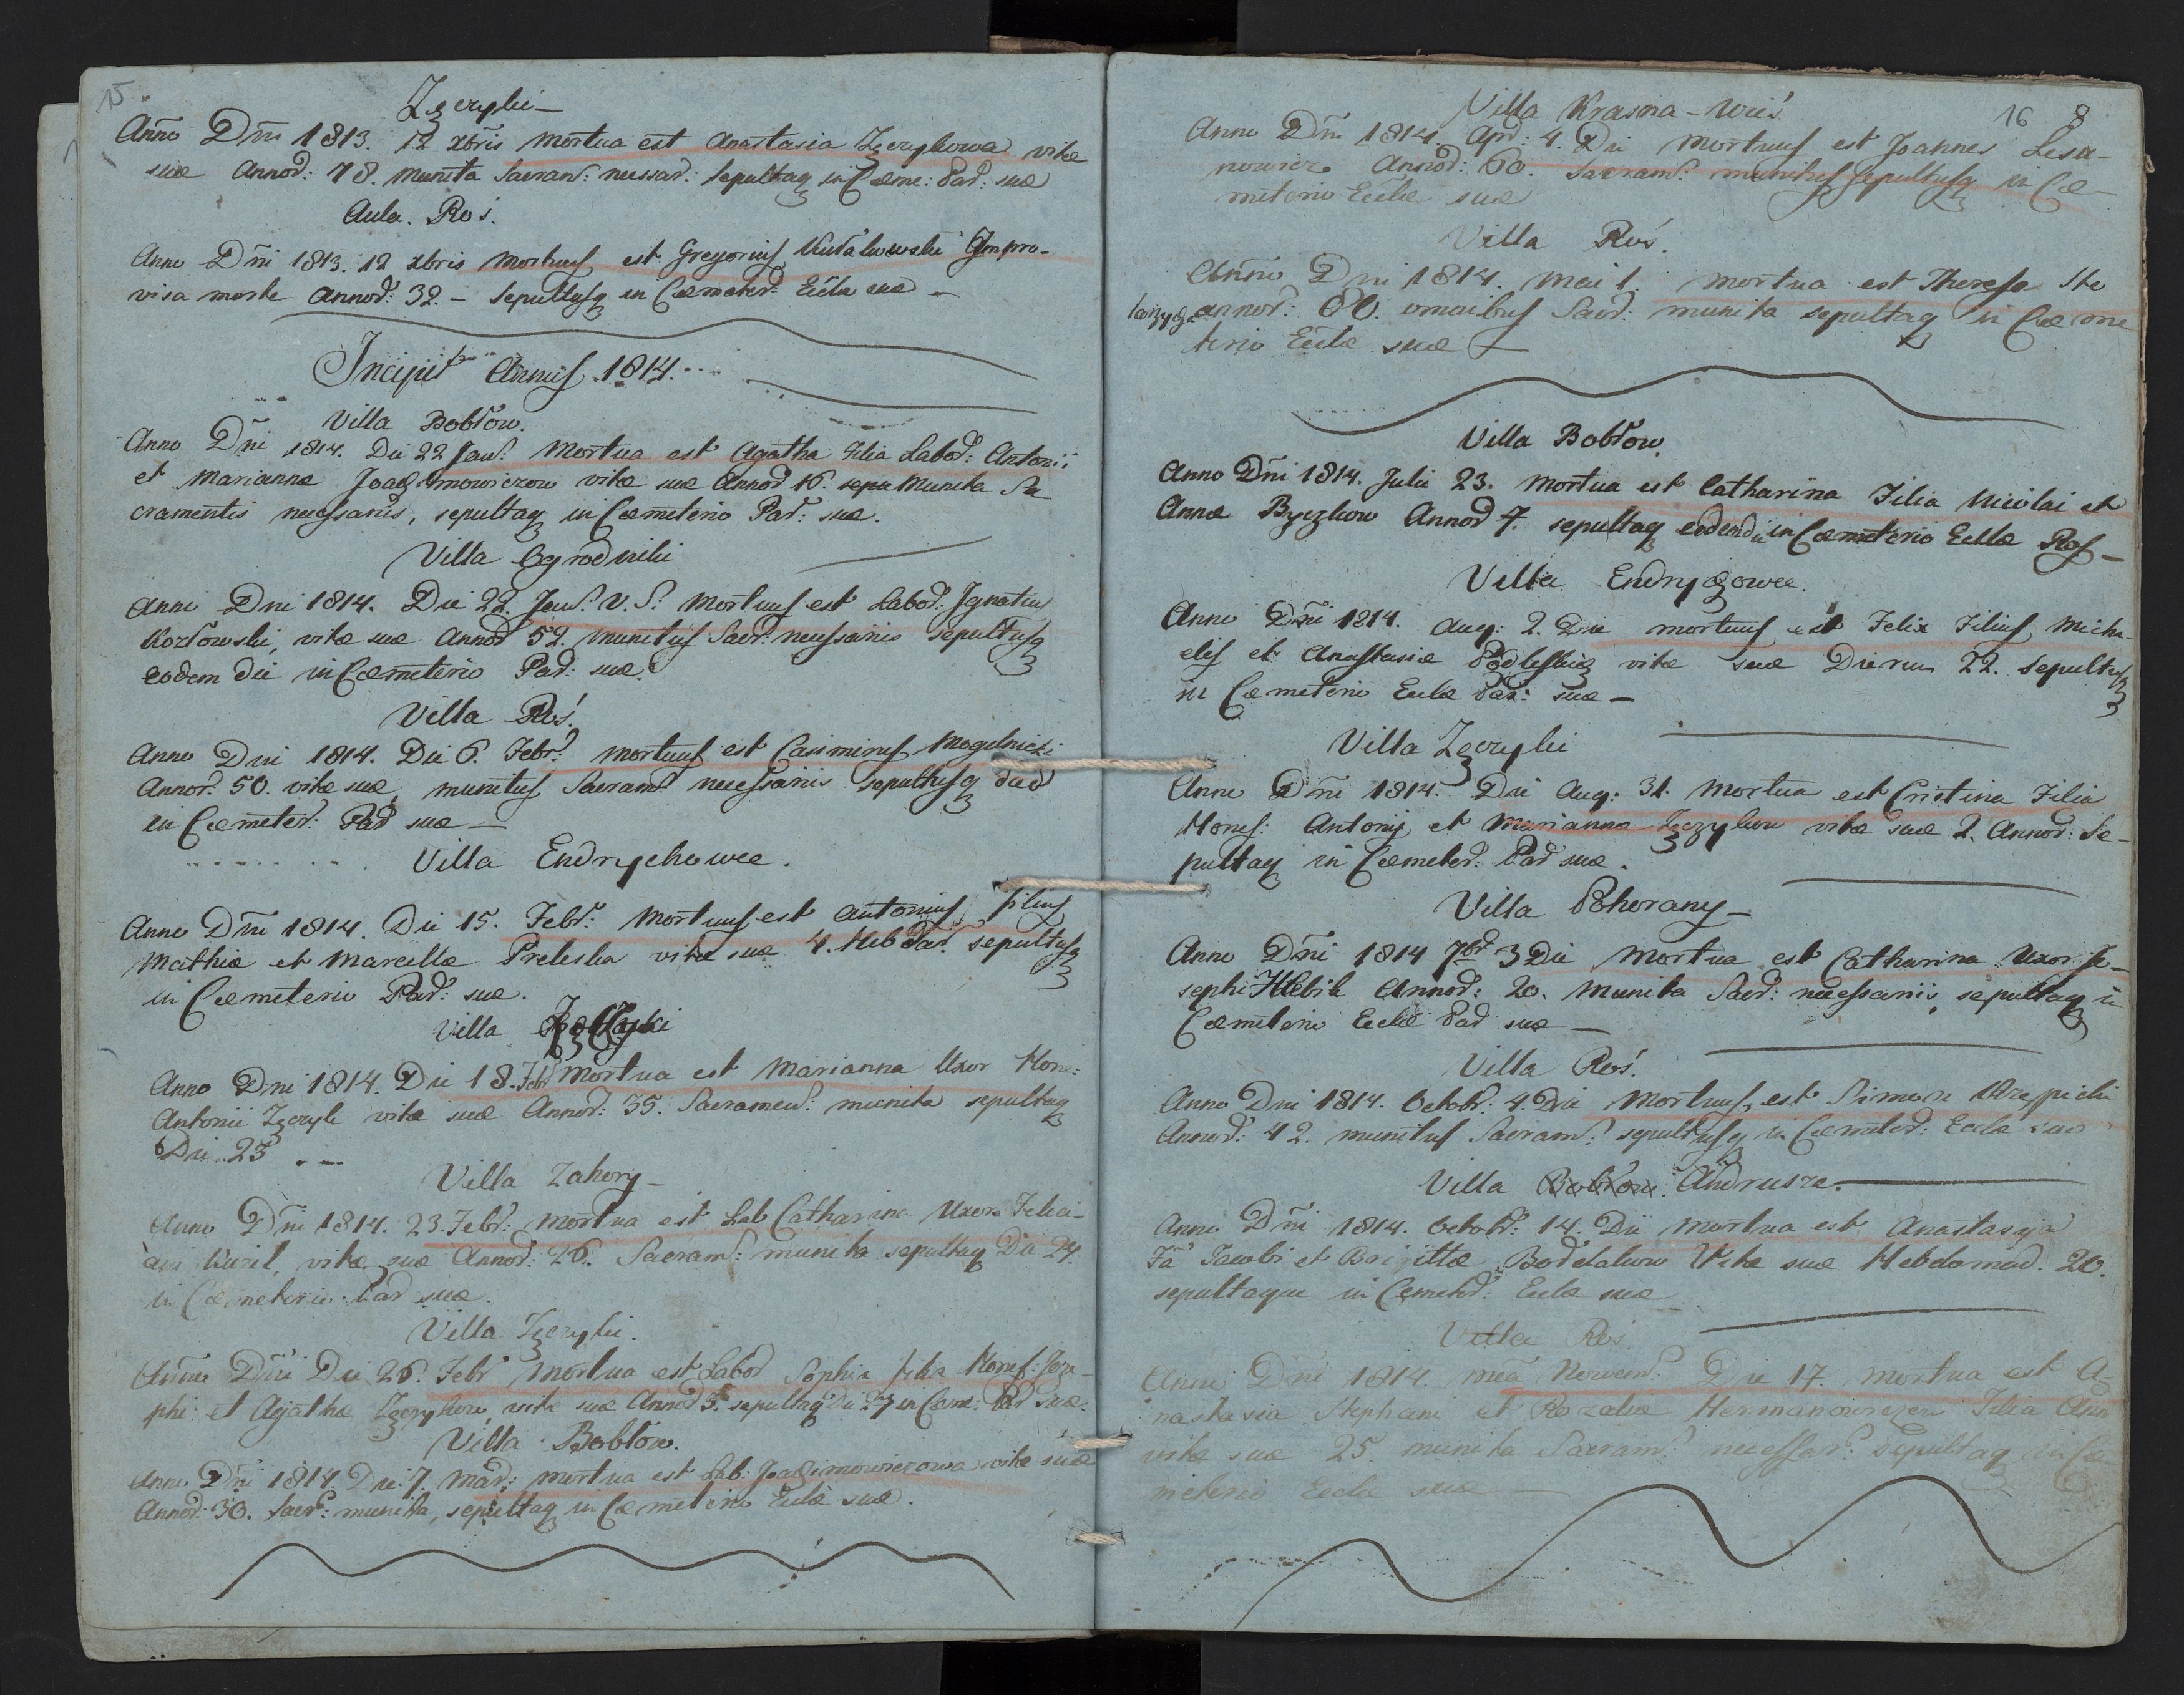 15
Zęczyki
Anno Dni 1813. 12 xbris mortua est Anastasia Zęczykowa vitæ
suæ Annor: 78. munita Sacram: necssar: sepultaq in Cæme: Par: suæ
Aula. Roś.
Anno Dni 1813. 12 xbris mortuus est Gregorius Kutakowski Impro-
visa morte Annor: 32. – sepultusq in Cæmeter: Eccla suæ –
Incipit Annus 1814.
Villa Bobłow.
Anno Dni 1814. Die 22 Jan: mortua est Agatha Filia Labor: Antonii
et Mariannæ Joachimowiczow vitæ suæ Annor 16. munita Sa-
cramentis necessariis, sepultaq in Cæmeterio Par: suæ.
Villa Ogrodniki
Anno Dni 1814. Die 22. Jan: V. S. mortuus est Labor: Ignatius
Kozłowski, vitæ suæ Annor 52. munitus Sacr: necessariis sepultusq
eodem die in Cæmeterio Par: suæ.
Villa Roś.
Anno Dni 1814. Die 6. Febr: mortuus est Casimirus Mogilnicki
Annor: 50. vitæ suæ, munitus Sacram necessariis sepultusq
in Cæmeter: Par suæ –
Villa Endrychowce.
Anno Dni 1814. Die 15. Febr: mortuus est Antonius filius
Mathiæ et Marcellæ vitæ suæ 4. Hebdar. sepultusq
in Cæmeterio Par: suæ.
Villa
Anno Dni 1814. Die 18. Febr mortua est Marianna Uxor Hone:
Antonii Zęczyk vitæ suæ Annor: 35. Sacramen: munita sepultaq
Die 23
Villa Zahory –
Anno Dni 1814. 23. Febr: mortua est Lab Catharina Uxor Felici-
ani Kuzil, vitæ suæ Annor: 26. Sacram: munita sepultaq Die 24.
in Cæmeterio Par suæ.
Villa Zęczyki.
Anno Dni Die 26. Febr mortua est Labor Sophia filia Hones: Joze-
phi et Agathæ Zęczykow vitæ suæ Annor 3. sepultaq Die 27 in Cæme: Par suæ.
Villa Bobłow.
Anno Dni 1814. Die 7. Mar: mortua est Lab: Joachimowiczowa vitæ suæ
Annor: 30. Sacr: munita, sepultaq in Cæmeterio Eccla suæ.
16 8
Villa Krasna-wieś.
Anno Dni 1814. Apr: 4. Die mortuus est Joannes Lesu-
nowicz Annor: 60. Sacram: munitus sepultusq in Cæ-
meterio Eccla suæ
Villa Roś.
Anno Dni 1814. Mai 1. mortua est Theresa Ste
annor: 80. omnibus Sacr: munita sepultaq in Cæme
terio Eccla suæ –
Villa Bobłow.
Anno Dni 1814. Julii 23. mortua est Catharina Filia Nicolai et
Annæ Byczkow Annor 7. sepultaq eodem die in Cæmeterio Ecclæ Ros –
Villa Endrychowce.
Anno Dni 1814. Aug: 2. Die mortuus est Felix Filius Micha-
elis et Anastasiæ vitæ suæ Dierum 22. sepultusq
in Cæmeterio Eccla Par: suæ –
Villa Zęczyki
Anno Dni 1814. Die Aug: 31. mortua est Cristina Filia
Hones: Antonij et Mariannæ Zęczykow vitæ suæ 2. Annor: Se-
pultaq in Cæmeter: Par suæ.
Villa Pohorany –
Anno Dni 1814 7br 3 Die mortua est Catharina Uxor Jo-
sephi Hlebik Annor: 20. munita Sacr: necessariis, sepultaq in
Cæmeterio Eccla Par suæ –
Villa Roś.
Anno Dni 1814. Octobr: 4. Die mortuus est Simon Krzepicki
Annor: 42. munitus Sacram: sepultusq in Cæmeter: Eccla suæ
Villa Bobłow. Andrusze.
Anno Dni 1814. Octobr: 14. Die mortua est Anastasyja
Fa Jacobi et Brigittæ Vitæ suæ Hebdomad. 20.
sepultaque in Cemeter: Eccla suæ
Villa Roś.
Anno Dni 1814. Novem: Die 17. mortua est A-
nastasia Stephani et Rozaliæ Hermanowiczow Filia Ann
vitæ suæ 25. munita Sacram: necessar: sepultaq in Cæ
meterio Eccla suæ